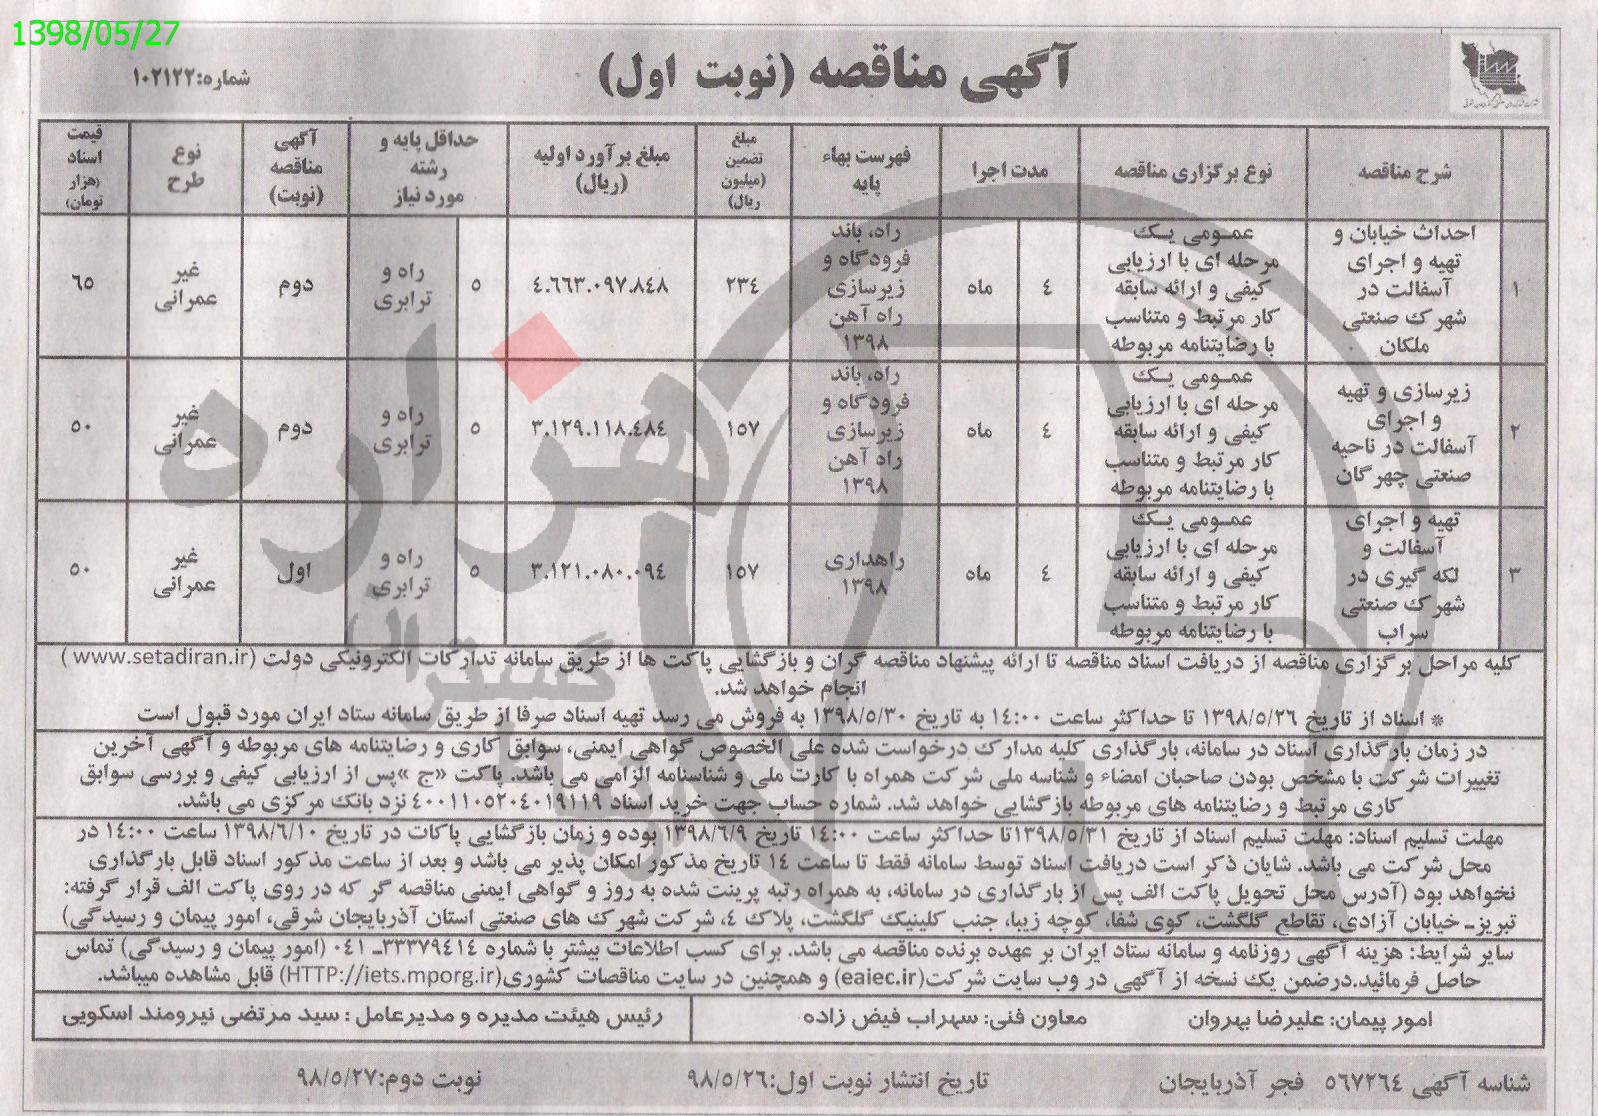 1398/05/27
آگهی مناقصه (نوبت اول)
شماره:۱۰۲۱۲۲
شرح مناقصه
نوع برگزاری مناقصه
مدت اجرا
فهرست بهاء
پایه
مبلغ
تضمین
(میلیون
ریال)
مبلغ برآورد اولیه
(ریال)
حداقل پایه و
رشته
مورد نیاز
آگهی
مناقصه
(نوبت)
نوع
طرح
قیمت
اسناد
(هزار
تومان)
۱
احداث خیابان و
تهیه و اجرای
آسفالت در
شهرک صنعتی
ملکان
عمومی یک
مرحله ای با ارزیابی
کیفی و ارائه سابقه
کار مرتبط و متناسب
با رضایتنامه مربوطه
۴
ماه
راه، باند
فرودگاه و
زیرسازی
راه آهن
۱۳۹۸
۲۳۴
۴.۶۶۳.۰۹۷.۸۴۸
۵
راه و
ترابری
دوم
غیر
عمرانی
۶۵
۲
زیرسازی و تهیه
و اجرای
آسفالت در ناحیه
صنعتی چهرگان
عمومی یک
مرحله ای با ارزیابی
کیفی و ارائه سابقه
کار مرتبط و متناسب
با رضایتنامه مربوطه
۴
ماه
راه، باند
فرودگاه و
زیرسازی
راه آهن
۱۳۹۸
۱۵۷
۳.۱۲۹.۱۱۸.۴۸۴
۵
راه و
ترابری
دوم
غیر
عمرانی
۵۰
۳
تهیه و اجرای
آسفالت و
لکه گیری در
شهرک صنعتی
سراب
عمومی یک
مرحله ای با ارزیابی
کیفی و ارائه سابقه
کار مرتبط و متناسب
با رضایتنامه مربوطه
۴
ماه
راهداری
۱۳۹۸
۱۵۷
۳.۱۲۱.۰۸۰.۰۹۴
۵
راه و
ترابری
اول
غیر
عمرانی
۵۰
کلیه مراحل برگزاری مناقصه از دریافت اسناد مناقصه تا ارائه پیشنهاد مناقصه گران و بازگشایی پاکت ها از طریق سامانه تدارکات الکترونیکی دولت (www.setadiran.ir )
انجام خواهد شد.
* اسناد از تاریخ ۱۳۹۸/۵/۲۶ تا حداکثر ساعت ۱۴:۰۰ به تاریخ ۱۳۹۸/۵/۳۰ به فروش می رسد تهیه اسناد صرفا از طریق سامانه ستاد ایران مورد قبول است
در زمان بارگذاری اسناد در سامانه، بارگذاری کلیه مدارک درخواست شده علی الخصوص گواهی ایمنی، سوابق کاری و رضایتنامه های مربوطه و آگهی آخرین
تغییرات شرکت با مشخص بودن صاحبان امضاء و شناسه ملی شرکت همراه با کارت ملی و شناسنامه الزامی می باشد. پاکت «ج »پس از ارزیابی کیفی و بررسی سوابق
کاری مرتبط و رضایتنامه های مربوطه بازگشایی خواهد شد. شماره حساب جهت خرید اسناد ۴۰۰۱۱۰۵۲۰۴۰۱۹۱۱۹ نزد بانک مرکزی می باشد.
مهلت تسلیم اسناد: مهلت تسلیم اسناد از تاریخ ۱۳۹۸/۵/۳۱تا حداکثر ساعت ۱۴:۰۰ تاریخ ۱۳۹۸/۶/۹ بوده و زمان بازگشایی پاکات در تاریخ ۱۳۹۸/۶/۱۰ ساعت ۱۴:۰۰ در
محل شرکت می باشد. شایان ذکر است دریافت اسناد توسط سامانه فقط تا ساعت ۱۴ تاریخ مذکور امکان پذیر می باشد و بعد از ساعت مذکور اسناد قابل بارگذاری
نخواهد بود (آدرس محل تحویل پاکت الف پس از بارگذاری در سامانه، به همراه رتبه پرینت شده به روز و گواهی ایمنی مناقصه گر که در روی پاکت الف قرار گرفته:
تبریز- خیابان آزادی، تقاطع گلگشت، کوی شفا، کوچه زیبا، جنب کلینیک گلگشت، پلاک ۴، شرکت شهرک های صنعتی استان آذربایجان شرقی، امور پیمان و رسیدگی)
سایر شرایط: هزینه آگهی روزنامه و سامانه ستاد ایران بر عهده برنده مناقصه می باشد. برای کسب اطلاعات بیشتر با شماره ۳۳۳۷۹۴۱۴-۰۴۱ (امور پیمان و رسیدگی) تماس
حاصل فرمائید.درضمن یک نسخه از آگهی در وب سایت شرکت(eaiec.ir) و همچنین در سایت مناقصات کشوری(HTTP://iets.mporg.ir) قابل مشاهده میباشد.
امور پیمان: علیرضا بهروان
معاون فنی: سهراب فیض زاده
رئیس هیئت مدیره و مدیرعامل : سید مرتضی نیرومند اسکویی
شناسه آگهی ۵۶۷۲۶۴ فجر آذربایجان
تاریخ انتشار نوبت اول:۹۸/۵/۲۶
نوبت دوم:۹۸/۵/۲۷
هزاره